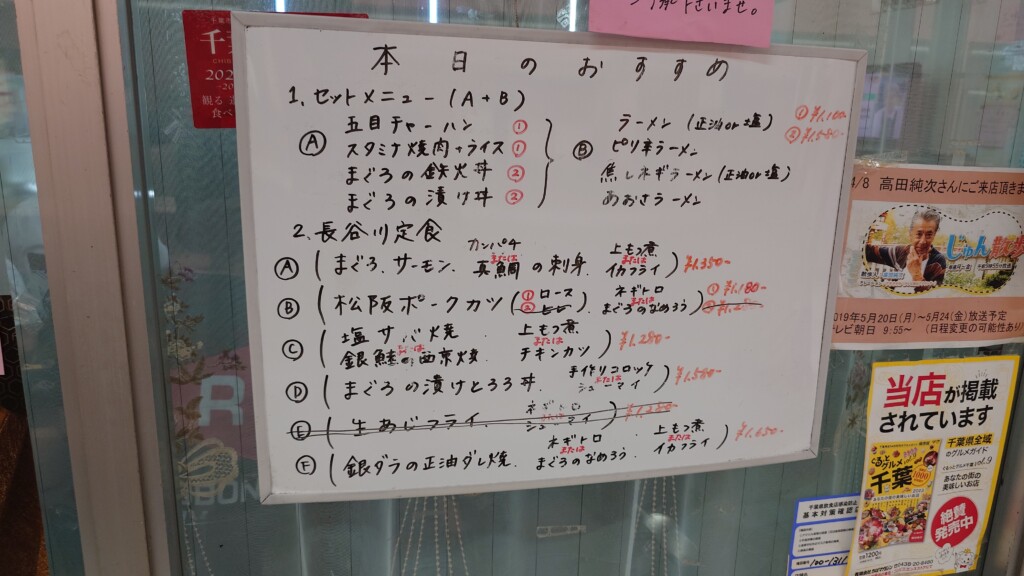 ざいませ。
本日のおすすめ
1. セットメニュー(A+B)
Ⓐ
五目チャーハン ①
スタミナ焼肉+ライス ①
まぐろの鉄火丼 ②
まぐろの漬け丼 ②
Ⓑ
ラーメン(正油or塩)
ピリ辛ラーメン
焦しネギラーメン(正油or塩)
あおさラーメン
① ¥1,100-
2. 長谷川定食
Ⓐ (まぐろ、サーモン、カンパチまたは真鯛の刺身、上もつ煮またはイカフライ) ¥1,350-
Ⓑ (松阪ポークカツ(①ロース ②ヒレ)、ネギトロまたはまぐろのなめろう) ①¥1,180-
Ⓒ (塩サバ焼または銀鮭の西京焼、上もつ煮またはチキンカツ) ¥1,280-
Ⓓ (まぐろの漬けとろろ丼、手作りコロッケまたはシューマイ) ¥1,580-
Ⓔ (生あじフライ、ネギトロまたはシューマイ) ¥1,280-
Ⓕ (銀ダラの正油ダレ焼、ネギトロまたはまぐろのなめろう、上もつ煮またはイカフライ) ¥1,650-
4/8 高田純次さんにご来店頂きま
じゅん散歩
2019年5月20日(月)〜5月24(金)放送予定
テレビ朝日 9:55〜 (日程変更の可能性あり)
当店が掲載
されています
ぐるっとグルメ
千葉
千葉県全域
のグルメガイド
vol.9
あなたの街の
美味しいお店
絶賛
発売中
基本対策確認